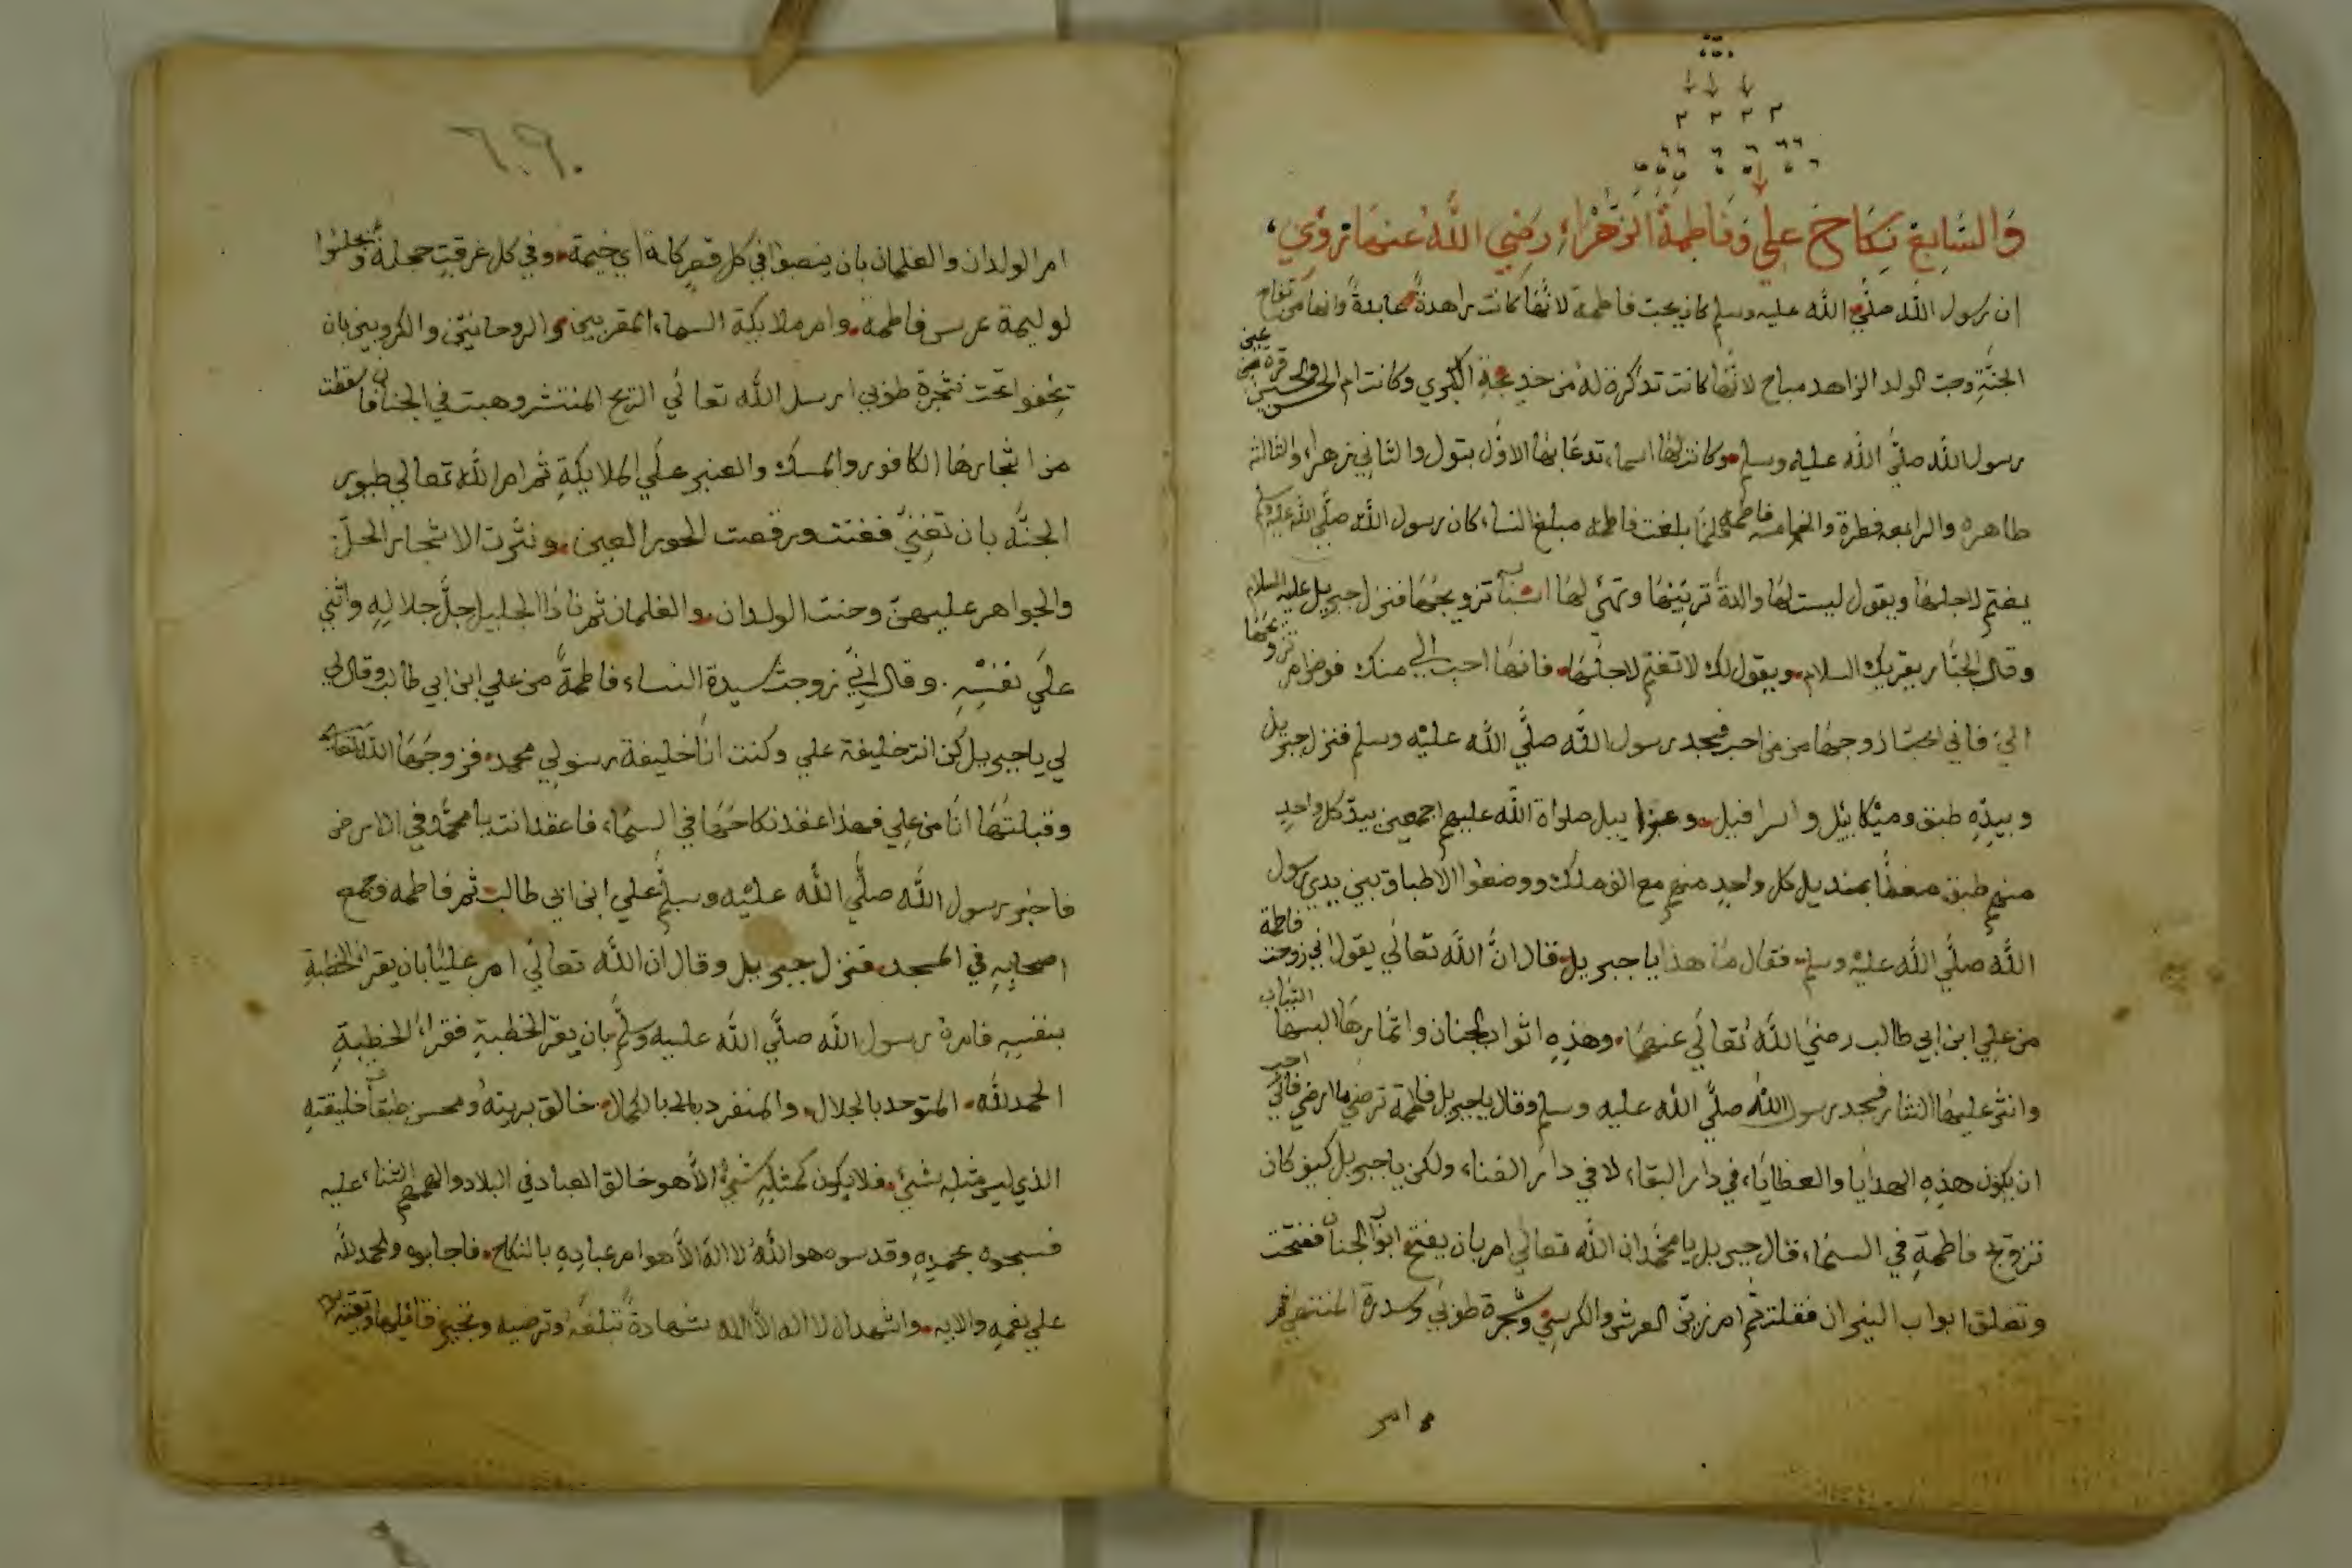 والسابع نكاح علي وفاطمة الزهراء رضي الله عنهما تروي
ان رسول الله صلى الله عليه وسلم كان يحب فاطمة لانها كانت زاهدة عابدة وانها من تفاح
الجنة وحب الولد الزاهد مباح لانها كانت تذكرة له من خديجة الكبري وكانت ام الحسن والحسين قرة عين
رسول الله صلي الله عليه وسلم وكانت لها اسماء تدعا بها الاول بتول والثاني زهراء والثالثة
طاهره والرابعه فطرة والخامسه فاطمه فلما بلغت فاطمه مبلغ النساء كان رسول الله صلي الله عليه وسلم
يغتم لاجلها ويقول ليست لها والدة تربينها وتهئ لها اسباب تزويجها فنزل جبريل عليه السلام
وقال الجبار يقريك السلام ويقول لك لا تغتم لاجلها فانها احب الي منك فوض امر تزويجها
الي فاني ازوجها من من احب فسجد رسول الله صلي الله عليه وسلم فنزل جبريل
وبيده طبق وميكاييل واسرافيل وعزراييل صلواة الله عليهم اجمعين بيد كل واحد
منهم طبق مغطا بمنديل كل واحد منهم مع الف ملك ووضعوا الاطباق بين يدي رسول
الله صلي الله عليه وسلم فقال ما هذا يا جبريل قال ان الله تعالي يقول اني زوجت فاطمة
من علي ابن ابي طالب رضي الله تعالي عنهما وهذه اثواب الجنان واثمارها البسها الثياب
وانثر عليها النثار فسجد رسول الله صلي الله عليه وسلم وقال يا جبريل فاطمة ترضي ما ارضي فاني احب
ان يكون هذه الهدايا والعطاياء في دار البقاء لا في دار الفناء ولكن يا جبريل كيف كان
تزويج فاطمة في السماء قال جبريل يا محمد ان الله تعالي امر بان يفتح ابواب الجنان ففتحت
وتغلق ابواب النيران فغلقت ثم امر زين العرش والكرسي وشجرة طوبي وسدرة المنتهي ثم
امر
٦٠٩
امر الولدان والغلمان بان ينصبوا في كل قصر كانة اي خيمة وفي كل غرفة حجلة ويجلسوا
لوليمة عرس فاطمة وامر ملايكة السماء المقربين والروحانيين والكروبين بان
تحفوا تحت شجرة طوبي ارسل الله تعالي الريح المنتشر وهبت في الجنان فاسقطت
من اشجارها الكافور والمسك والعنبر علي الملايكة ثم امر الله تعالي طيور
الجنة بان تغني فغنت ورقصت الحور العين ونثرت الاشجار الحلل
والجواهر عليهن وحنت الولدان والغلمان ثم نادا الجليل جل جلاله واثني
علي نفسه وقال اني زوجت سيدة النساء فاطمة من علي ابن ابي طالب وقال لي
لي يا جبريل كن انت خليفة علي وكنت انا خليفة رسولي محمد فزوجها الله تعالي
وقبلتها انا من علي فهذا عقد نكاحها في السماء فاعقد انت يا محمد في الارض
فاخبر رسول الله صلي الله عليه وسلم علي ابن ابي طالب ثم فاطمه وجمع
اصحابه في المسجد فنزل جبريل وقال ان الله تعالي امر عليا بان يقرا الخطبة
بنفسه فامره رسول الله صلي الله عليه وسلم بان يقرا الخطبة فقراء الخطبة
الحمد لله المتوحد بالجلال والمنفرد بالكمال خالق بريته ومحسن خليقته
الذي ليس مثله شيء فلا يكون كمثله شيء الا هو خالق العباد في البلاد والهمهم الثناء عليه
فسبحوه بحمده وقدسوه هو الله لا اله الا هو امر عباده بالنكاح فاجابوه والحمد لله
علي نعمه والايه واشهد ان لا اله الا الله شهادة تبلغه وترضيه وتجيز قايلها وتقيه